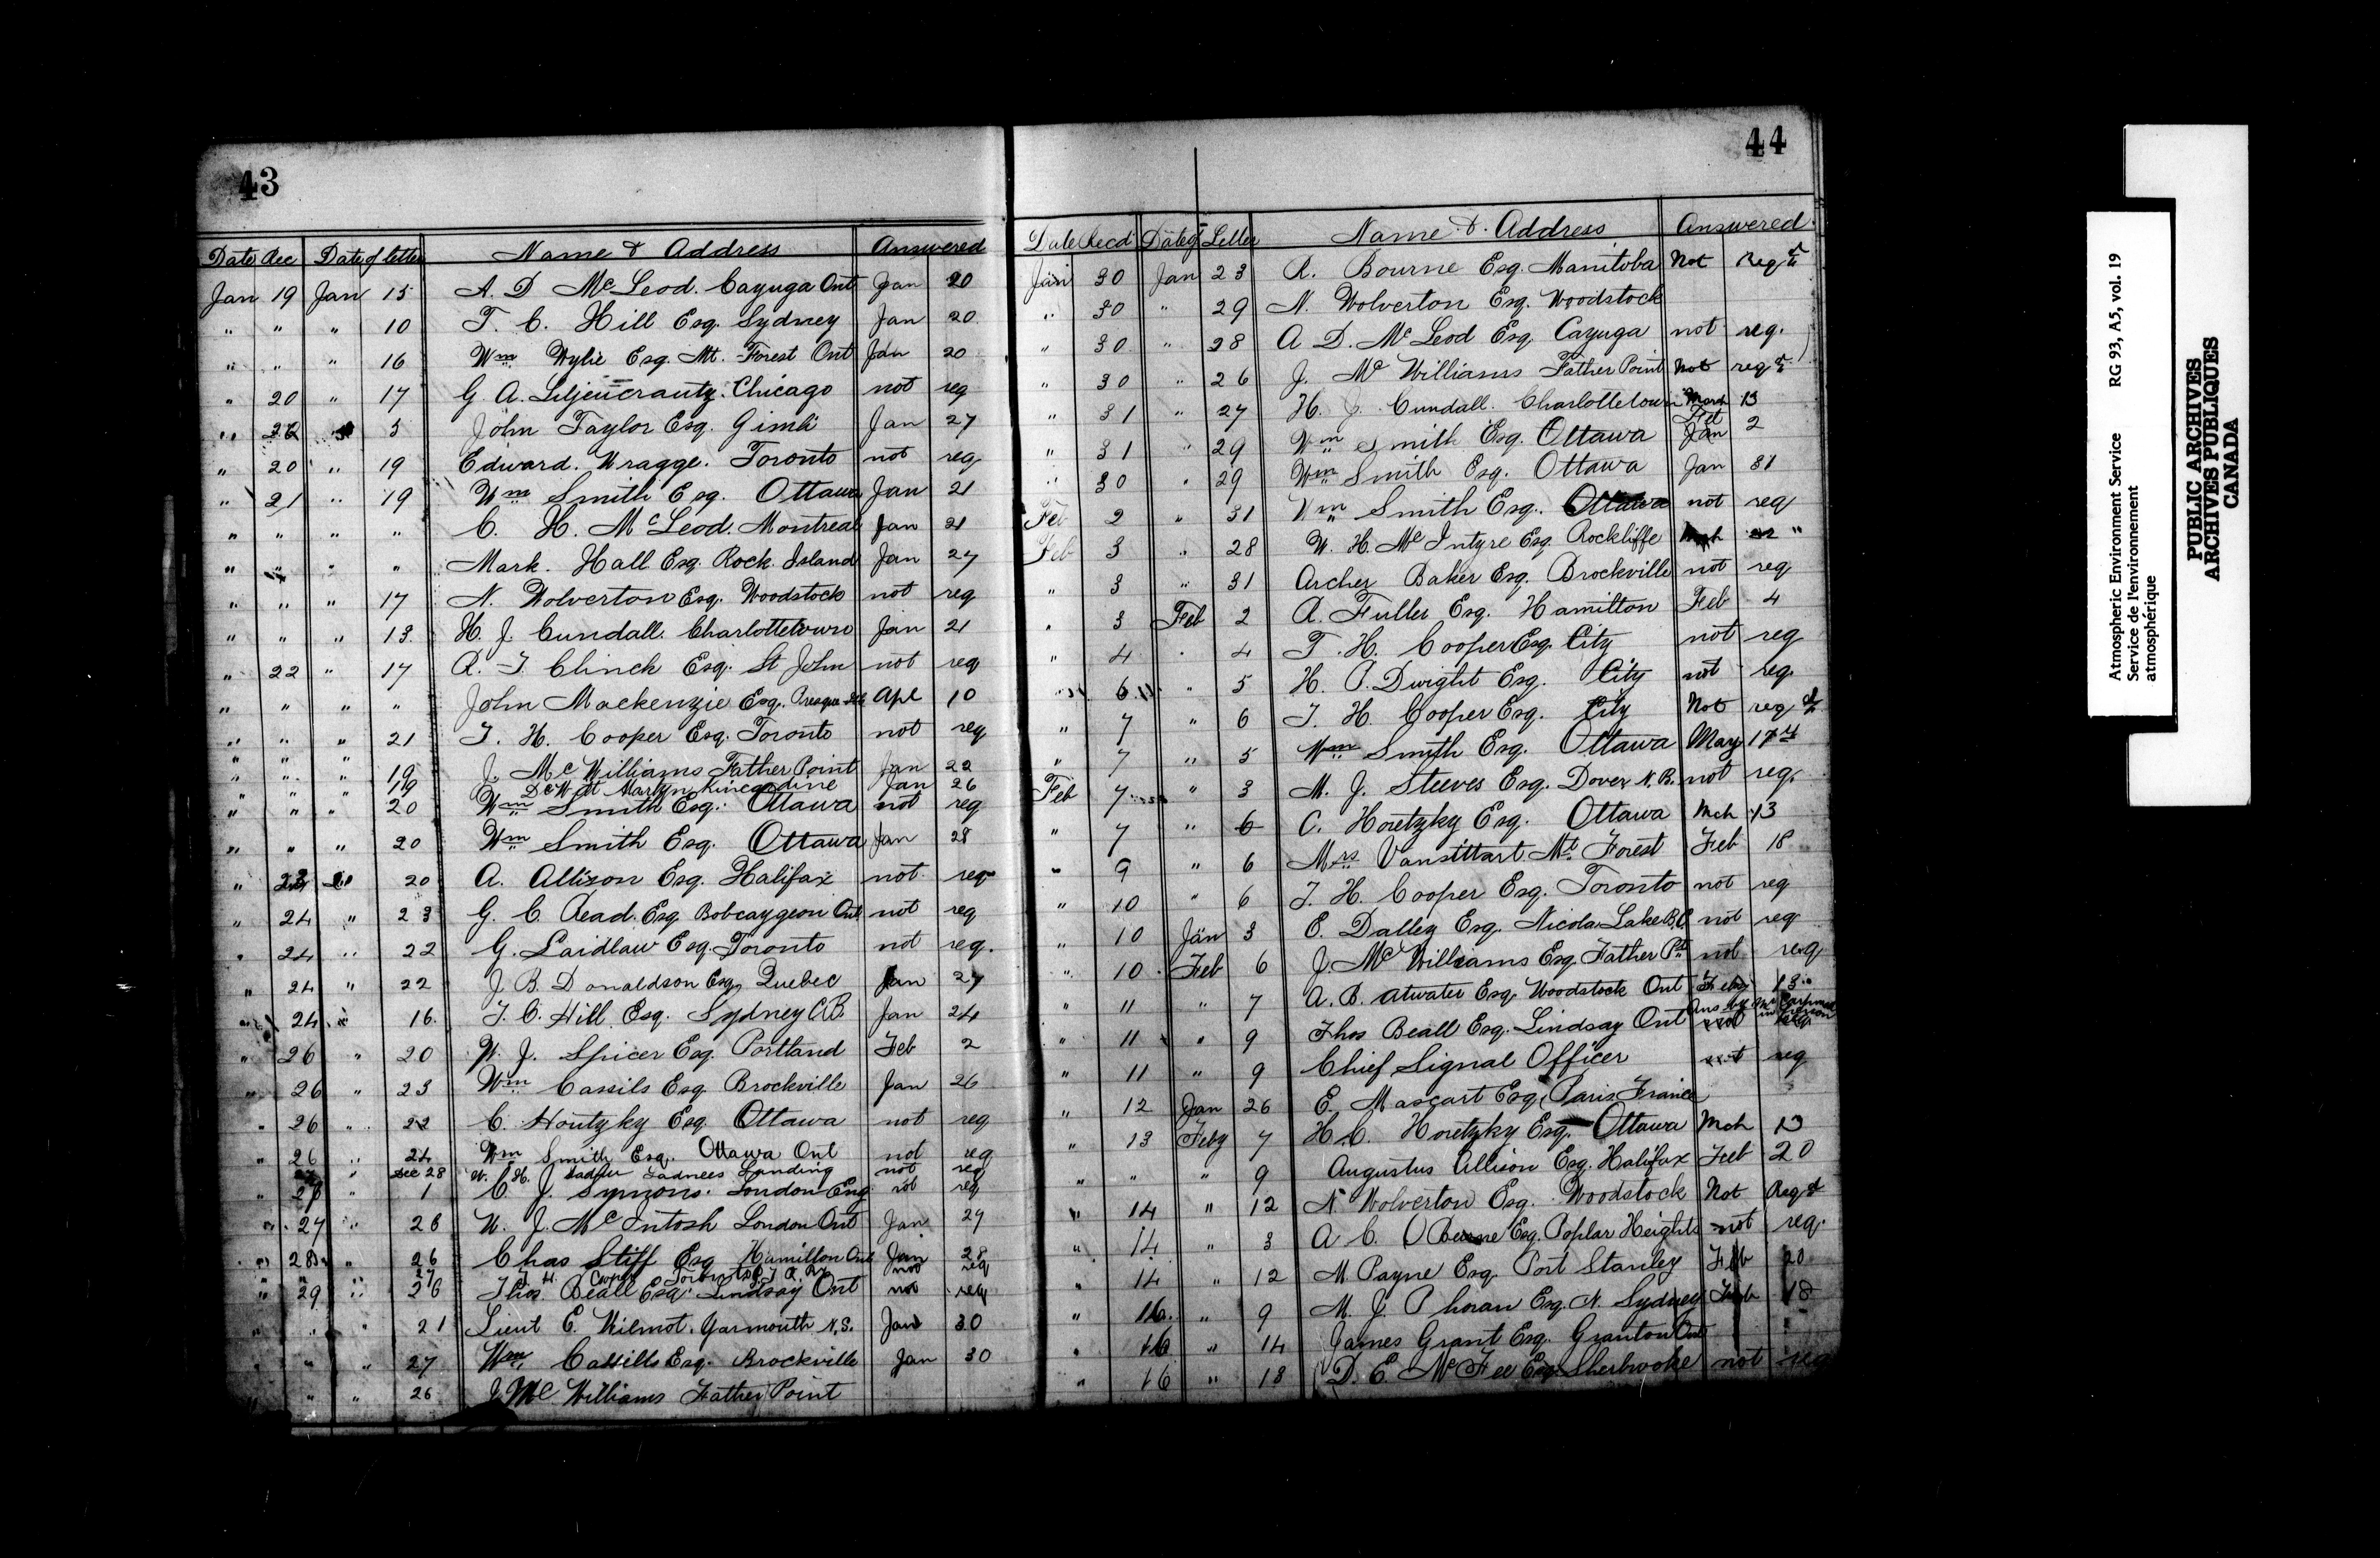 43
Date Rec Date of letter Name & Address Answered
Jan 19 Jan 15 A. D McLeod. Cayuga Ont Jan 20
" " " 10 T. C. Hill Esq. Sydney Jan 20
" " " 16 Wm Wylie Esq. Mt. Forest Ont Jan 20
" 20 " 17 G. A. Liljeucrantz. Chicago not req
" 5 John Taylor Esq. Gimli Jan 27
" 20 " 19 Edward. Wragge. Toronto not req
" 21 " 19 Wm Smith Esq. Ottawa Jan 21
" " " " C. H. McLeod. Montreal Jan 21
" " " " Mark. Hall Esq. Rock Island Jan 27
" " " 17 N. Wolverton Esq. Woodstock not req
" " " 13 H. J. Cundall. Charlottetown Jan 21
" 22 " 17 R. T. Clinch Esq. St John not req
" " " " John Mackenzie Esq. Presque Isle Apl 10
" " " 21 T. H. Cooper Esq. Toronto not req
" " " 19 J. McWilliams Father Point Jan 22
" " " 19 Martyn Kincardine Jan 26
" " " 20 Wm Smith Esq. Ottawa not req
" " " 20 Wm Smith Esq. Ottawa Jan 28
" 23 20 A. Allison Esq. Halifax not req
" 24 " 23 G. C. Read. Esq. Bobcaygeon Ont not req
" 24 " 22 G. Laidlaw Esq. Toronto not req.
" 24 " 22 J. B. Donaldson Esq. Quebec Jan 27
" 24 " 16. T. C. Hill Esq. Sydney C.B. Jan 24
" 26 " 20 W. J. Spicer Esq. Portland Feb 2
" 26 " 23 Wm Cassils Esq. Brockville Jan 26
" 26 " 22 C. Houtzky Esq. Ottawa not req
" 26 " 24 Wm Smith Esq. Ottawa Ont not req
" Dec 28 W. H. J. Ladners Landing not req
" " 1 C. J. Symons. London Eng. not req
" 27 " 26 W. J. McIntosh London Ont Jan 29
" 28 " 26 Chas Stiff Esq Hamilton Ont Jan 28
" " 27 T. H. Cooper Toronto not req
" 29 " 26 Thos. Beall Esq. Lindsay Ont not req
" " " 21 Lieut C. Wilmot. Yarmouth N.S. Jan 30
" " 27 Wm Cassills Esq. Brockville Jan 30
" " 26 J. McWilliams Father Point
44
Date Recd Date of Letter Name & Address Answered
Jan 30 Jan 23 R. Bourne Esq. Manitoba Not Reqd
" 30 " 29 N. Wolverton Esq. Woodstock
" 30 " 28 A D. McLeod Esq. Cayuga not req.
" 30 " 26 J. McWilliams Father Point Not reqd
" 31 " 27 H. J. Cundall. Charlottetown March 13
" 31 " 29 Wm Smith Esq. Ottawa Feb Jan 2
" 30 " 29 Wm Smith Esq. Ottawa Jan 31
Feb 2 " 31 Wm Smith Esq. Ottawa not req
Feb 3 " 28 W. H. McIntyre Esq. Rockliffe
" 3 " 31 Archer Baker Esq. Brockville not req
" 3 Feb 2 R. Fuller Esq. Hamilton Feb 4
" 4 " 4 T. H. Cooper Esq. City not req
" 6 " 5 H. P. Dwight Esq. City not req.
" 7 " 6 T. H. Cooper Esq. City Not reqd
" 7 " 5 Wm Smith Esq. Ottawa May 17th
Feb 7 " 3 M. J. Steeves Esq. Dover N.B. not req.
" 7 " 6 C. Horetzky Esq. Ottawa Mch 13
" 9 " 6 Mrs Vansittart Mt Forest Feb 18
" 10 " 6 T. H. Cooper Esq. Toronto not req
" 10 Jan 3 E. Dalley Esq. Nicola Lake B.C. not req
" 10 Feb 6 J. McWilliams Esq. Father Pt not req
" 11 " 7 A. B. Atwater Esq. Woodstock Ont Feby 13
" 11 " 9 Thos Beall Esq. Lindsay Ont Ans by Mr Carpmael in person not req.
" 11 " 9 Chief Signal Officer not req
" 12 Jan 26 E. Mascart Esq. Paris France
" 13 Feby 7 H. C. Horetzky Esq. Ottawa Mch 13
" " " 9 Augustus Allison Esq. Halifax Feb 20
" 14 " 12 N Wolverton Esq. Woodstock Not Reqd
" 14 " 3 A C. Esq. Poplar Heights not req.
" 14 " 12 M Payne Esq. Port Stanley Feb 20
" 16. " 9 M. J. Phoran Esq. N. Sydney Feb 18
" 16 " 14 James Grant Esq. Granton Ont
" 16 " 18 D. E. McFee Esq. Sherbrooke not req
Atmospheric Environment Service RG 93, A5, vol. 19
Service de l'environnement
atmosphérique
PUBLIC ARCHIVES
ARCHIVES PUBLIQUES
CANADA